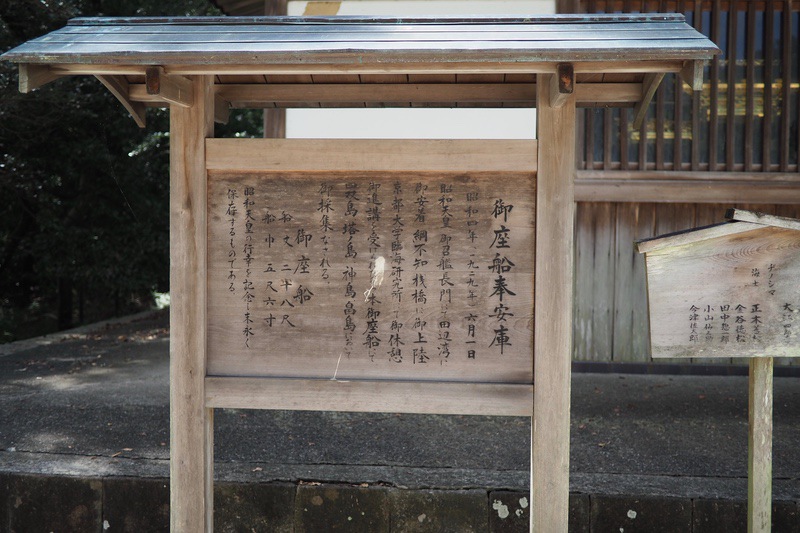 御座船奉安庫
昭和四年(一九二九年)六月一日
昭和天皇 御召艦長門にて田辺湾に
御安着 綱不知桟橋に御上陸
京都大学臨海研究所にて御休憩
御進講を受け 御座船にて
島 塔島 神島 畠島 於て
御採集なされる。
御座船
船丈 二十八尺
船巾 五尺六寸
昭和天皇の行幸を記念し末永く
保存するものである。
海士
正木
金谷徳松
田中惣一郎
小山
今津